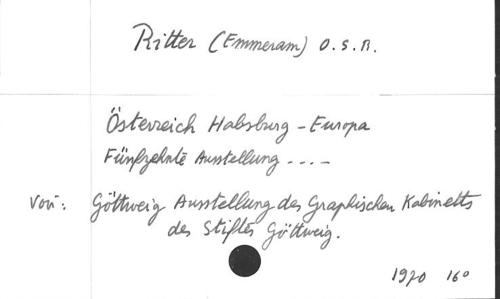 Ritter (Emmeram) O.S.B.
Österreich Habsburg - Europa
Fünfzehnte Ausstellung ....
Voir: Göttweig Ausstellung des Graphischen Kabinetts
des Stiftes Göttweig.
1970 16°